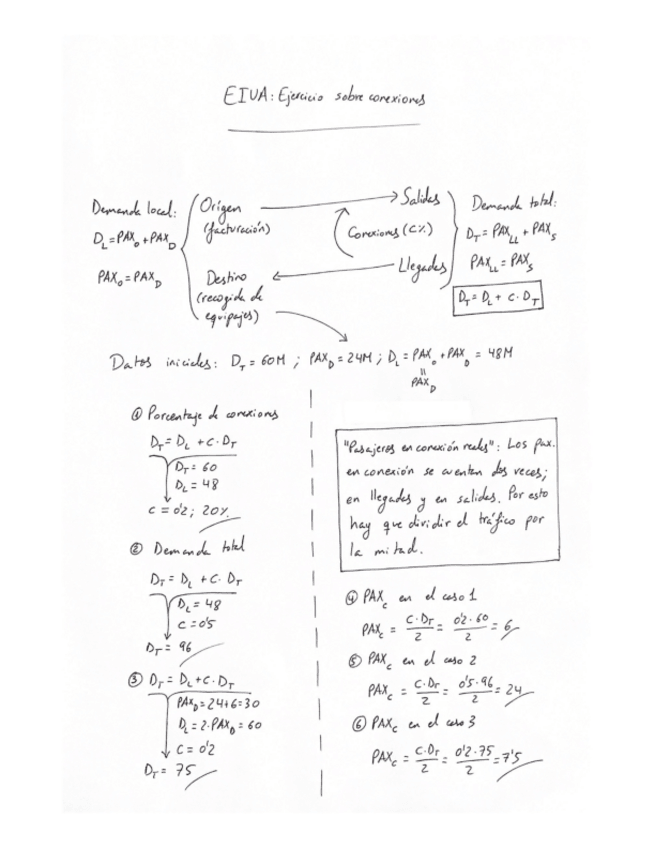 EIVA: Ejercicio sobre conexiones
Demanda local:
D_L = PAX_O + PAX_D
PAX_O = PAX_D
Origen
(facturación)
Destino
(recogida de
equipajes)
Conexiones (C%)
Salidas
Llegadas
Demanda total:
D_T = PAX_LL + PAX_S
PAX_LL = PAX_S
D_T = D_L + C · D_T
Datos iniciales: D_T = 60M ; PAX_D = 24M ; D_L = PAX_O + PAX_D = 48M
||
PAX_D
① Porcentaje de conexiones
D_T = D_L + C · D_T
D_T = 60
D_L = 48
C = 0'2 ; 20%
② Demanda total
D_T = D_L + C · D_T
D_L = 48
C = 0'5
D_T = 96
③ D_T = D_L + C · D_T
PAX_D = 24+6 = 30
D_L = 2·PAX_D = 60
C = 0'2
D_T = 75
"Pasajeros en conexión reales": Los pax.
en conexión se cuentan dos veces;
en llegadas y en salidas. Por esto
hay que dividir el tráfico por
la mitad.
④ PAX_C en el caso 1
PAX_C = C·D_T / 2 = 0'2·60 / 2 = 6
⑤ PAX_C en el caso 2
PAX_C = C·D_T / 2 = 0'5·96 / 2 = 24
⑥ PAX_C en el caso 3
PAX_C = C·D_T / 2 = 0'2·75 / 2 = 7'5